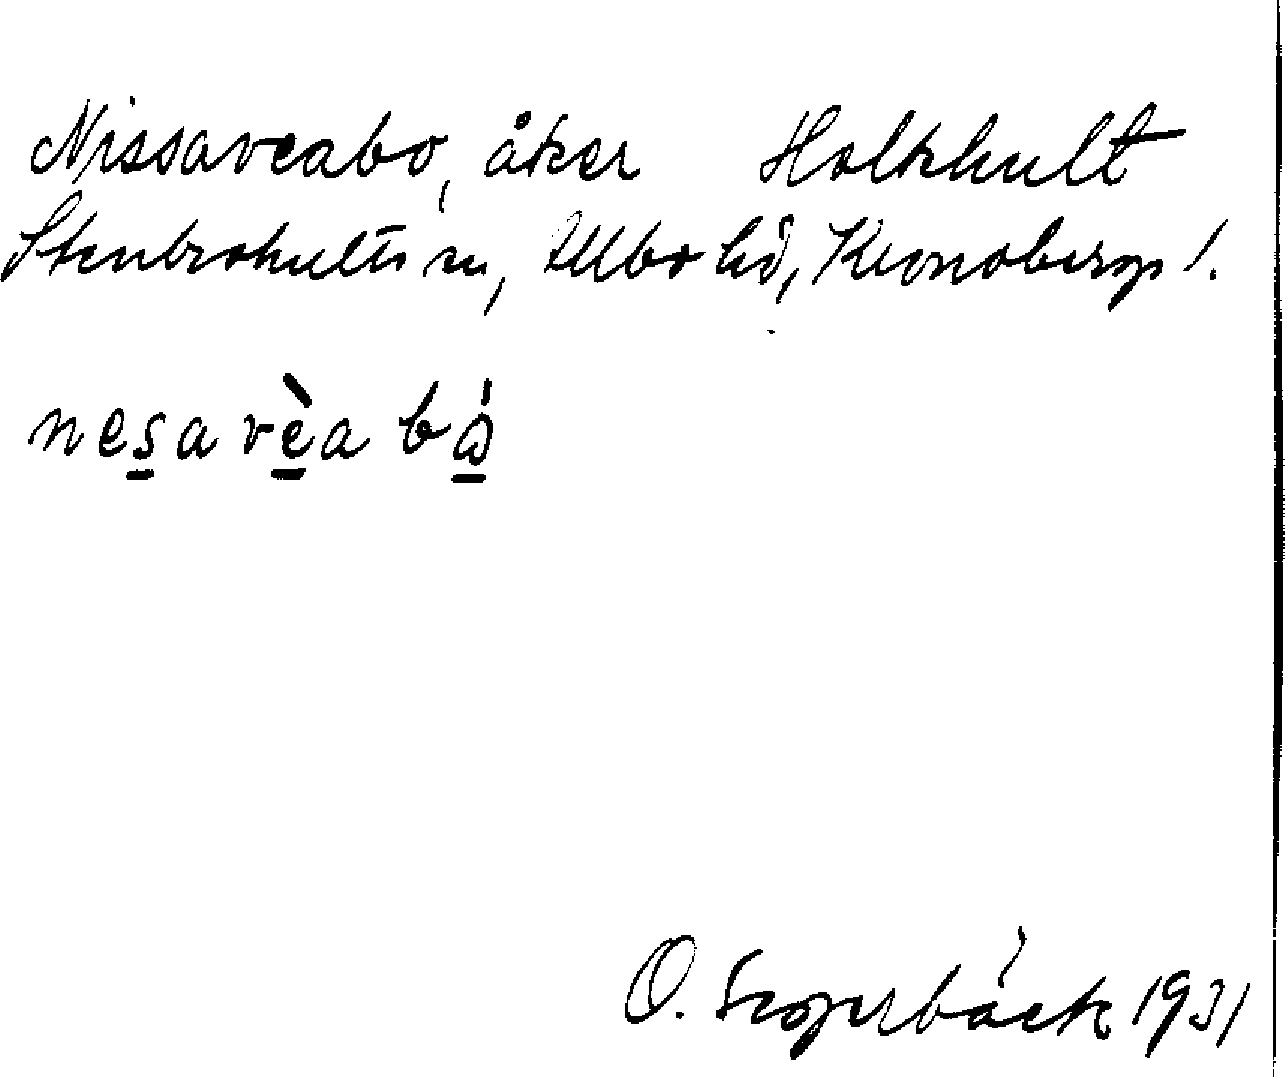 Nissaveabo, åker Holkhult
Stenbrohults sn, Allbo hd, Kronobergs l.
nesa vèa bó
O. Segerbäck 1931